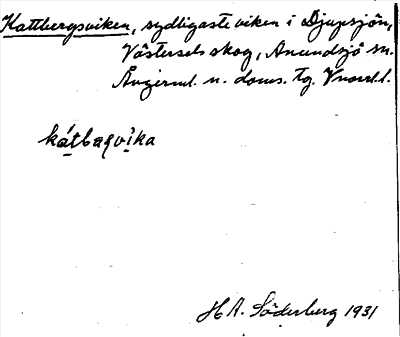 Kattbergsviken, sydligaste viken i Djupsjön,
Västersels skog, Anundsjö sn.
Ångerml. n. doms. tg. Vnorrl. l.
kátbaqvìka
H A. Söderberg 1931